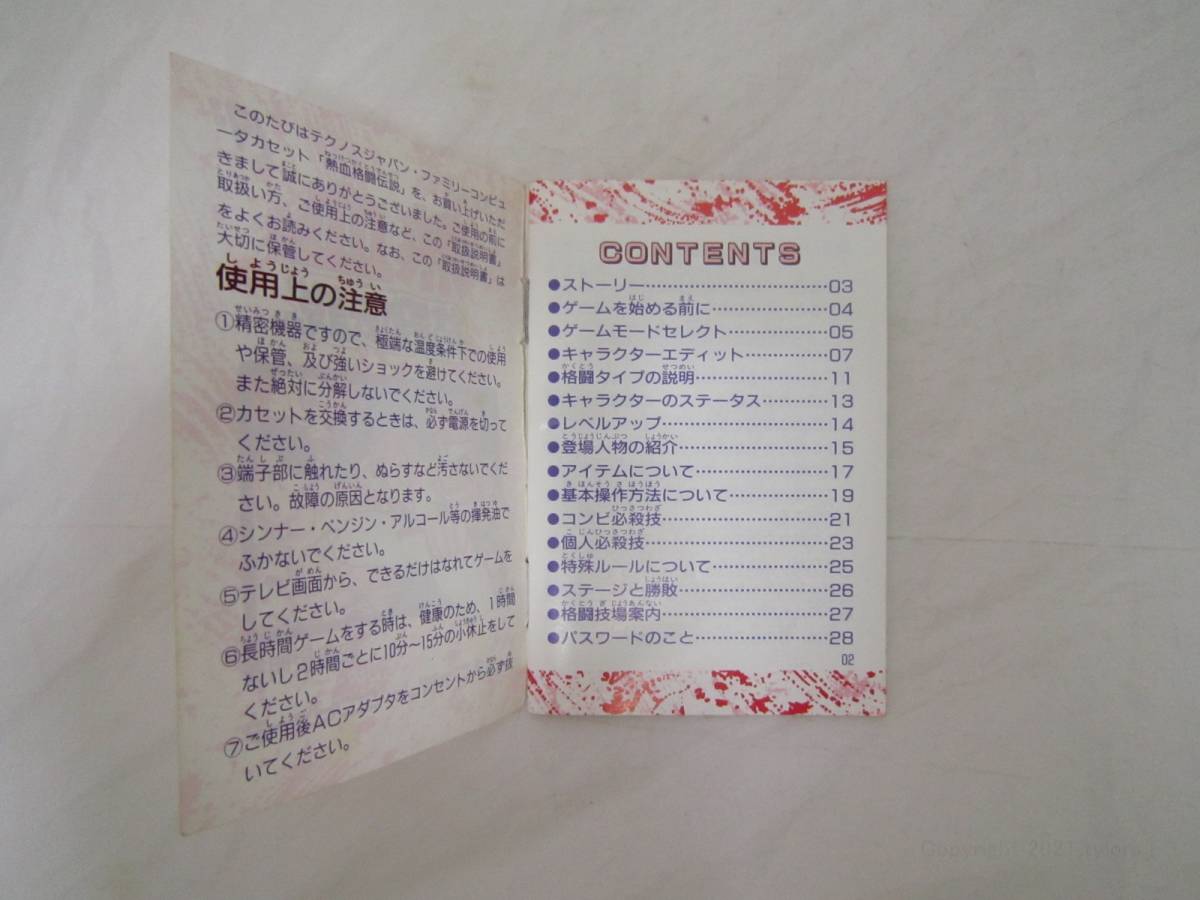 このたびはテクノスジャパン・ファミリーコンピュ
ータカセット「熱血格闘伝説」を、お買い上げいただ
きまして誠にありがとうございました。ご使用の前に
取扱い方、ご使用上の注意など、この「取扱説明書」
をよくお読みください。なお、この「取扱説明書」は
大切に保管してください。
使用上の注意
①精密機器ですので、極端な温度条件下での使用
や保管、及び強いショックを避けてください。
また絶対に分解しないでください。
②カセットを交換するときは、必ず電源を切って
ください。
③端子部に触れたり、ぬらすなど汚さないでくだ
さい。故障の原因となります。
④シンナー・ベンジン・アルコール等の揮発油で
ふかないでください。
⑤テレビ画面から、できるだけはなれてゲームを
してください。
⑥長時間ゲームをする時は、健康のため、1時間
ないし2時間ごとに10分~15分の小休止をして
ください。
⑦ご使用後ACアダプタをコンセントから必ず抜
いてください。
CONTENTS
●ストーリー……………………03
●ゲームを始める前に……………04
●ゲームモードセレクト…………05
●キャラクターエディット………07
●格闘タイプの説明………………11
●キャラクターのステータス……13
●レベルアップ……………………14
●登場人物の紹介…………………15
●アイテムについて………………17
●基本操作方法について…………19
●コンビ必殺技……………………21
●個人必殺技………………………23
●特殊ルールについて……………25
●ステージと勝敗…………………26
●格闘技場案内……………………27
●パスワードのこと………………28
02